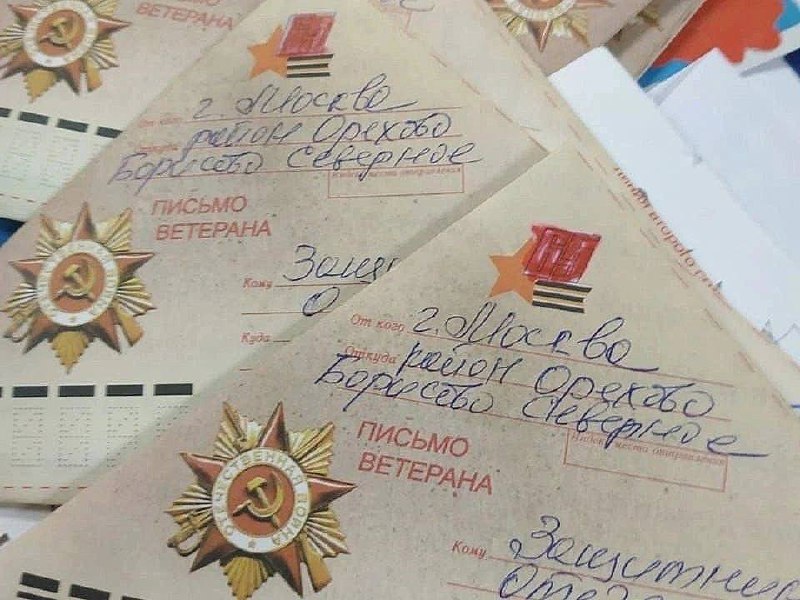 ПИСЬМО
ВЕТЕРАНА
От кого г. Москва
Откуда район Орехово
Борисово Северное
Индекс места отправления
ПИСЬМО
ВЕТЕРАНА
Кому
Куда
От кого г. Москва
Откуда район Орехово
Борисово Северное
Индекс места отправления
ПИСЬМО
ВЕТЕРАНА
ОТЕЧЕСТВЕННАЯ ВОЙНА
Кому Защитник
Отеч